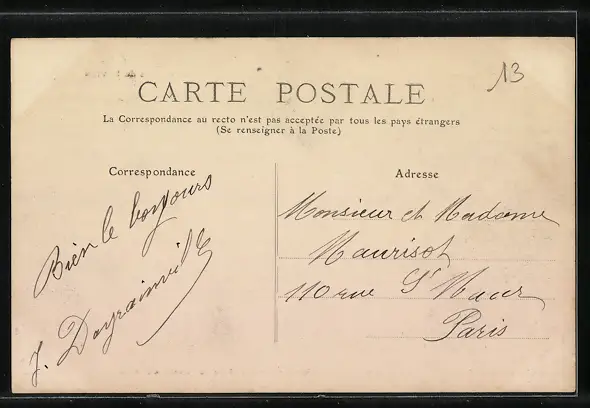 13
CARTE POSTALE
La Correspondance au recto n'est pas acceptée par tous les pays étrangers
(Se renseigner à la Poste)
Correspondance
Bien le bonjours
J.
Adresse
Monsieur et Madame
Maurisot
110 rue St Maur
Paris